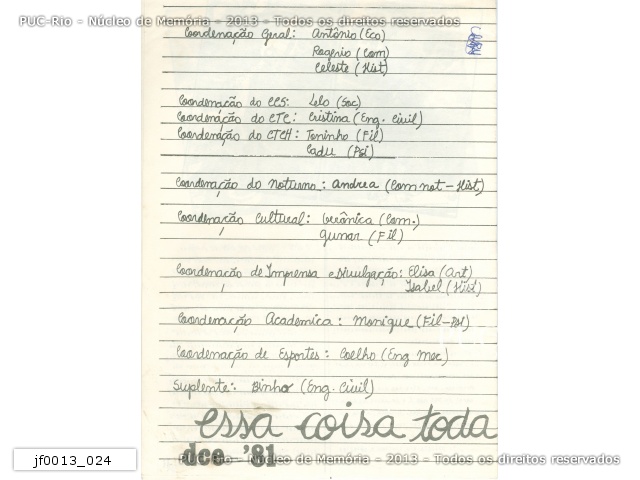 PUC-Rio - Núcleo de Memória - 2013 - Todos os direitos reservados
Coordenação Geral: Antônio (Eco)
Rogério (Com)
Celeste (Hist)
Coordenação do CCS: Lelo (Soc)
Coordenação do CTC: Cristina (Eng. Civil)
Coordenação do CTCH: Toninho (Fil)
Cadu (Psi)
Coordenação do Noturno: Andrea (Com not - Hist)
Coordenação Cultural: Verônica (Com.)
Gunar (Fil)
Coordenação de Imprensa e Divulgação: Elisa (Art)
Isabel (Hist)
Coordenação Academica: Monique (Fil-Psi)
Coordenação de Esportes: Coelho (Eng Mec)
Suplente: Binho (Eng. Civil)
essa coisa toda
dce '81
PUC-Rio - Núcleo de Memória - 2013 - Todos os direitos reservados
jf0013_024